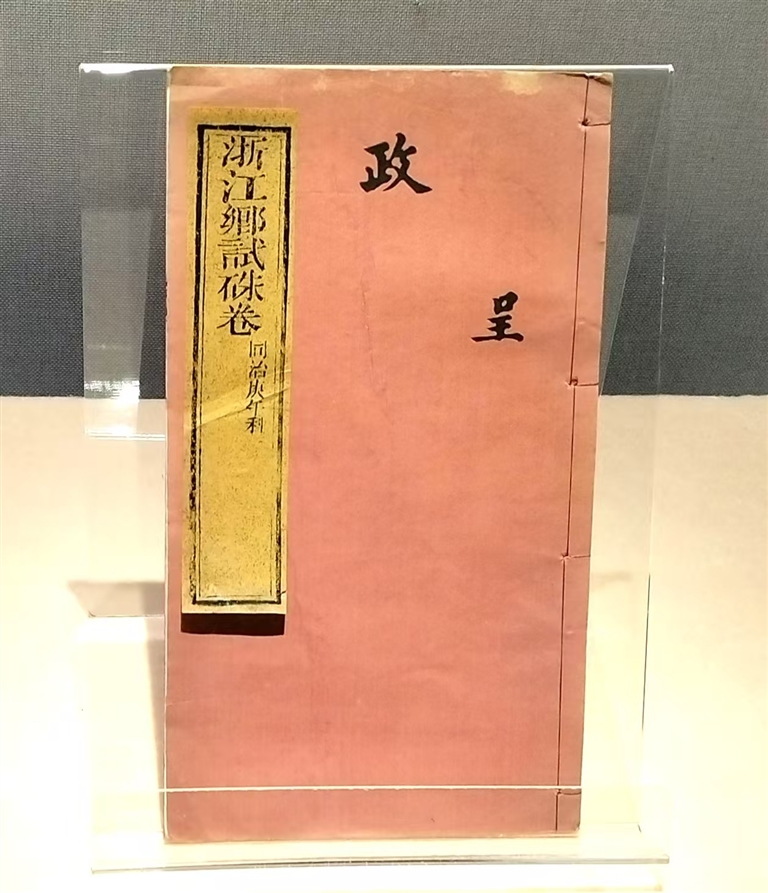 呈
政
浙江鄉試硃卷
同治庚午科